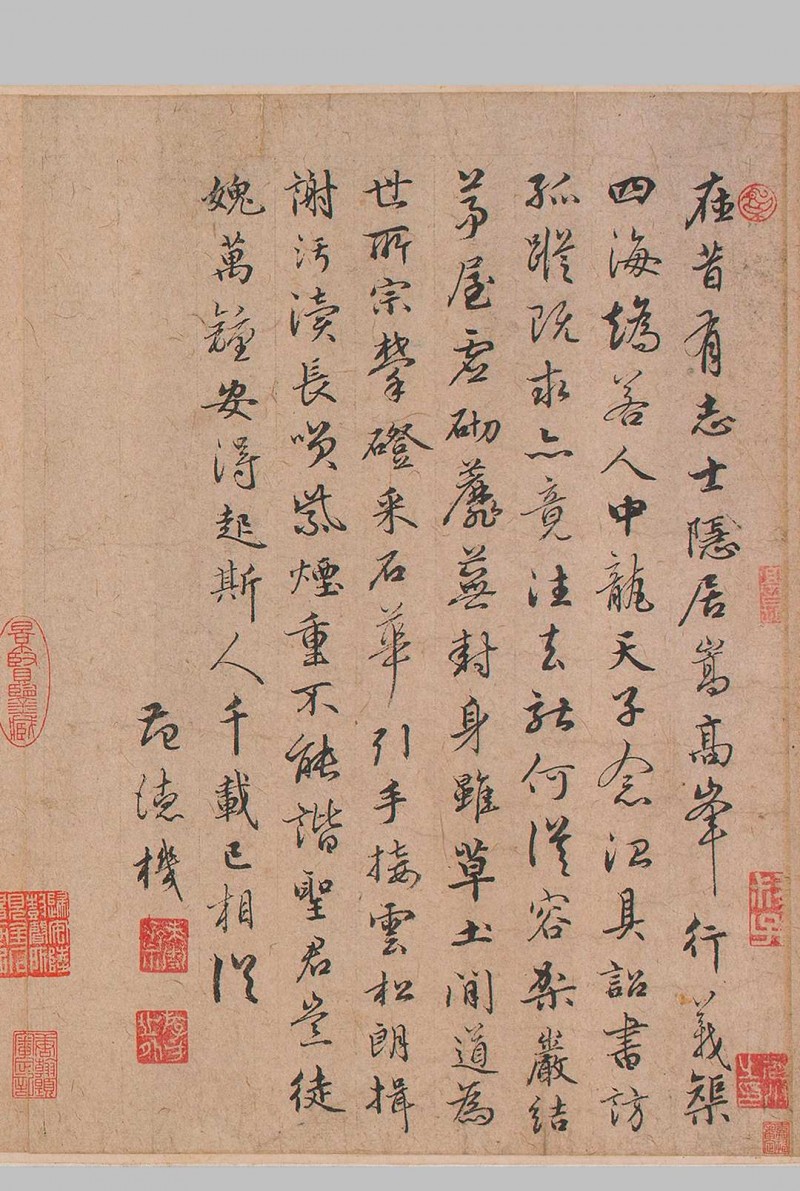 在昔有志士隱居嵩高峯行義榘
四海矯若人中龍天子念治具詔書訪
孤蹤既求亦竟往去就何從容架巖結
茅屋虛砌蘼蕪封身雖草土間道為
世所宗攀磴采石華引手接雲松朗揖
謝汙瀆長嘆紫煙重不能諧聖君豈徒
媿萬鍾安得起斯人千載已相從
范德機
景賢鑒藏